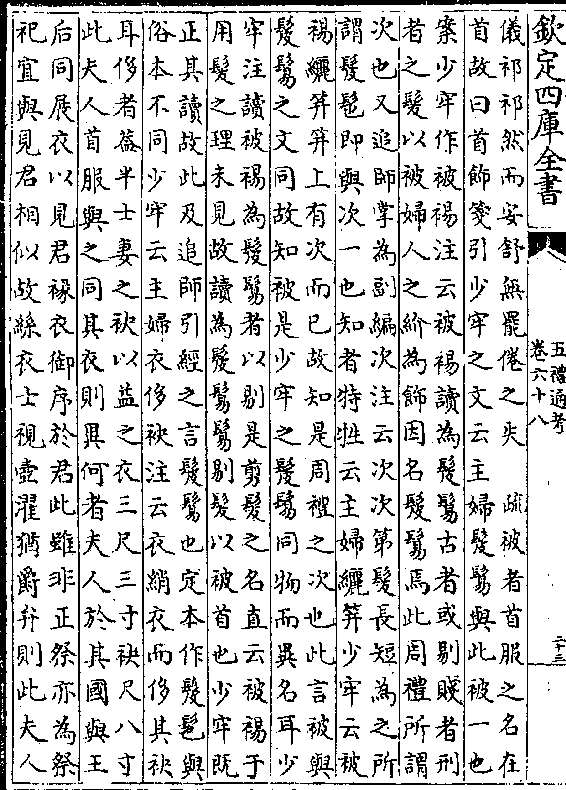 欽定四庫全書
五禮通考
卷六十八
二十三
儀祁祁然而安舒無罷倦之失　疏被者首服之名在
首故曰首飾箋引少牢之文云主婦髲鬄與此被一也
案少牢作被裼注云被裼讀為髲鬄古者或剔賤者刑
者之髮以被婦人之紒為飾因名髲鬄焉此周禮所謂
次也又追師掌為副編次注云次次第髮長短為之所
謂髲髢即與次一也知者特牲云主婦纚笄少牢云被
裼纚笄笄上有次而已故知是周禮之次也此言被與
髲鬄之文同故知被是少牢之髲鬄同物而異名耳少
牢注讀被裼為髲鬄者以剔是剪髮之名直云被裼于
用髮之理未見故讀為髲鬄鬄剔髮以被首也少牢既
正其讀故此及追師引經之言髲鬄也定本作髲髢與
俗本不同少牢云主婦衣侈袂注云衣綃衣而侈其袂
耳侈者葢半士妻之袂以益之衣三尺三寸袂尺八寸
此夫人首服與之同其衣則異何者夫人於其國與王
后同展衣以見君褖衣御序於君此雖非正祭亦為祭
祀宜與見君相似故絲衣士視壺濯猶爵弁則此夫人